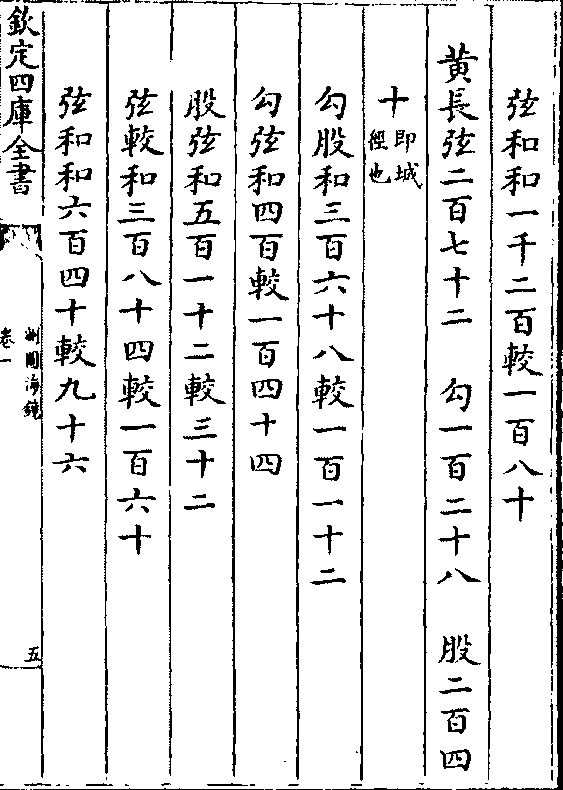 弦和和一千二百較一百八十
黄長弦二百七十二　勾一百二十八　股二百四
十即城徑也
勾股和三百六十八較一百一十二
勾弦和四百較一百四十四
股弦和五百一十二較三十二
弦較和三百八十四較一百六十
弦和和六百四十較九十六
欽定四庫全書
測圓海鏡
卷一
五